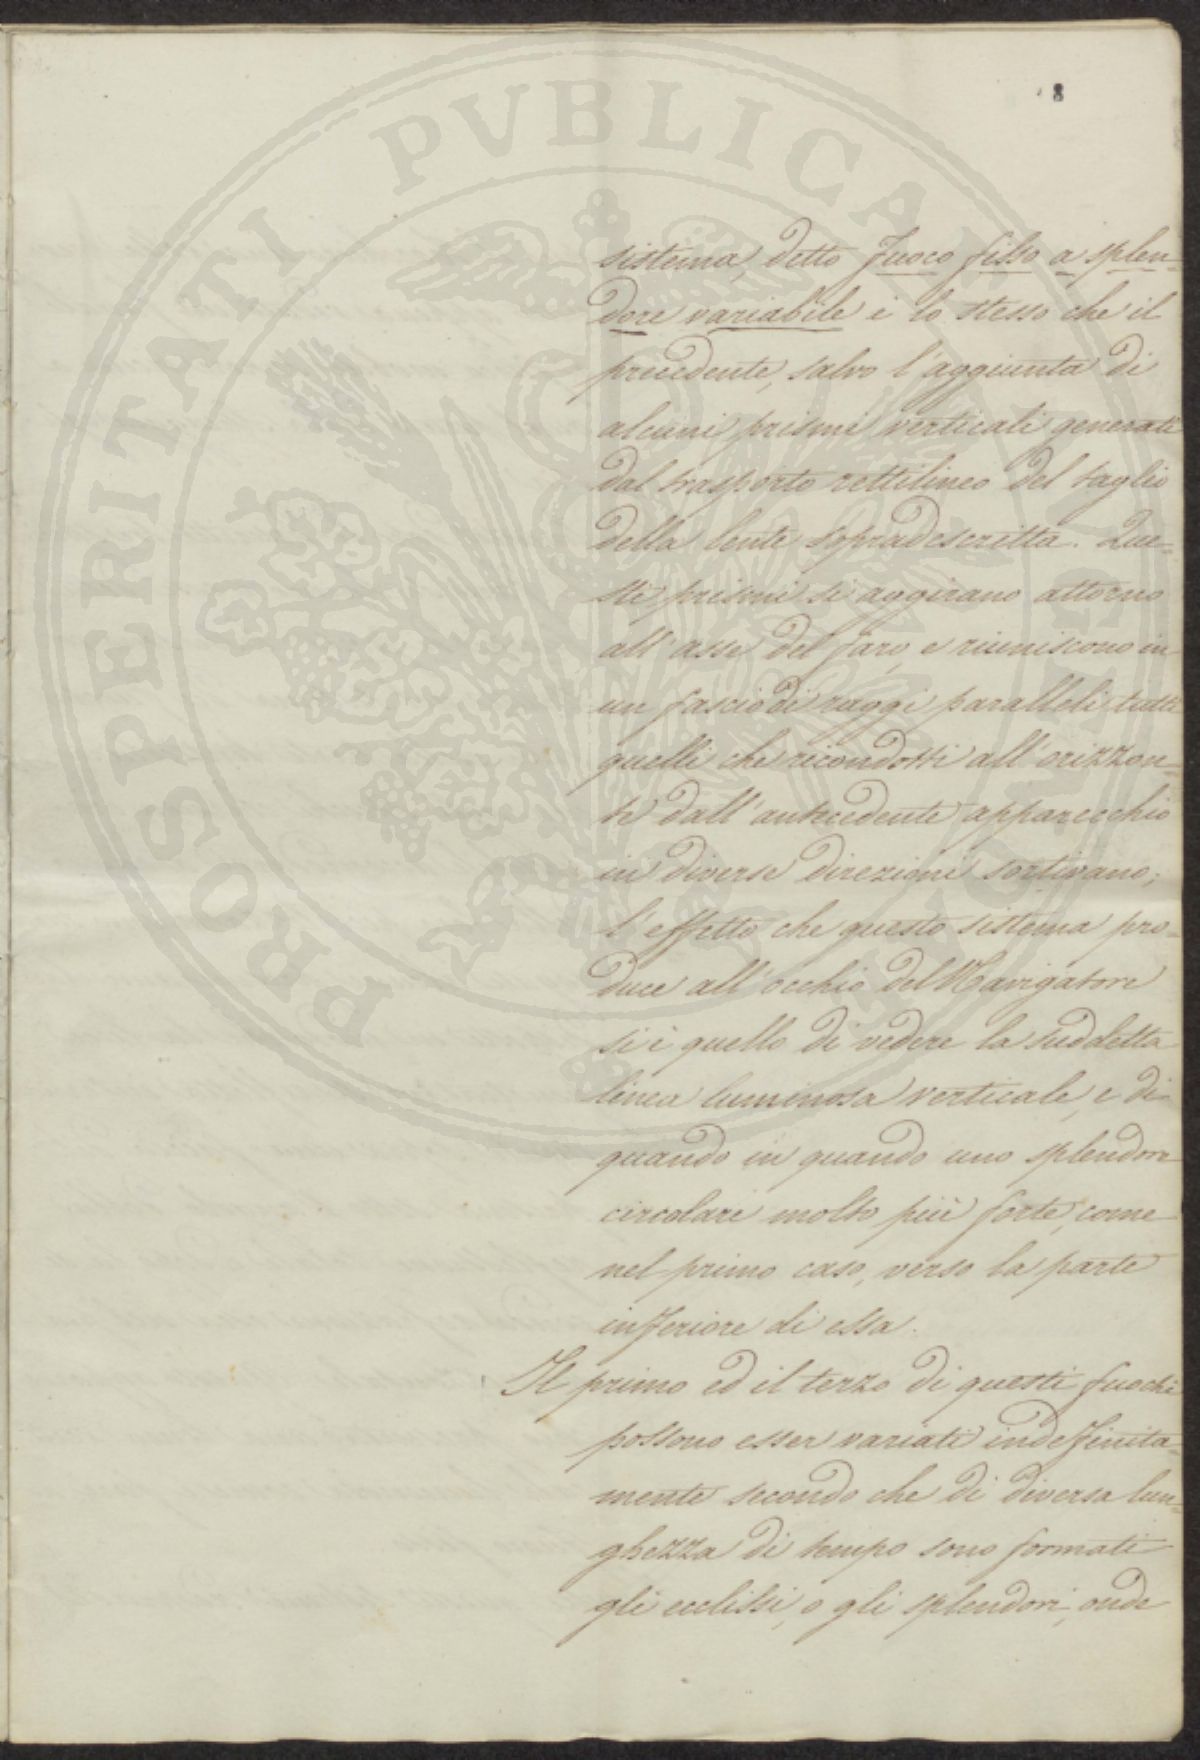 8
PROSPERITATI PVBLICAE AVGENDAE
sistema, detto Fuoco fisso a splen=
dore variabile è lo stesso che il
precedente, salvo l'aggiunta di
alcuni prismi verticali generati
dal trasporto rettilineo del taglio
della lente sopradescritta. Que=
sti prismi si aggirano attorno
all'asse del faro, e riuniscono in
un fascio di raggi paralleli tutti
quelli che ricondotti all'orizzon=
te dall'antecedente apparecchio
in diverse direzioni sortivano;
l'effetto che questo sistema pro=
duce all'occhio del Navigatore
si è quello di vedere la suddetta
linea luminosa verticale, e di
quando in quando uno splendore
circolare molto più forte, come
nel primo caso, verso la parte
inferiore di essa.
Il primo ed il terzo di questi fuochi
possono esser variati indefinita=
mente secondo che di diversa lun=
ghezza di tempo sono formati
gli ecclissi, o gli splendori, onde